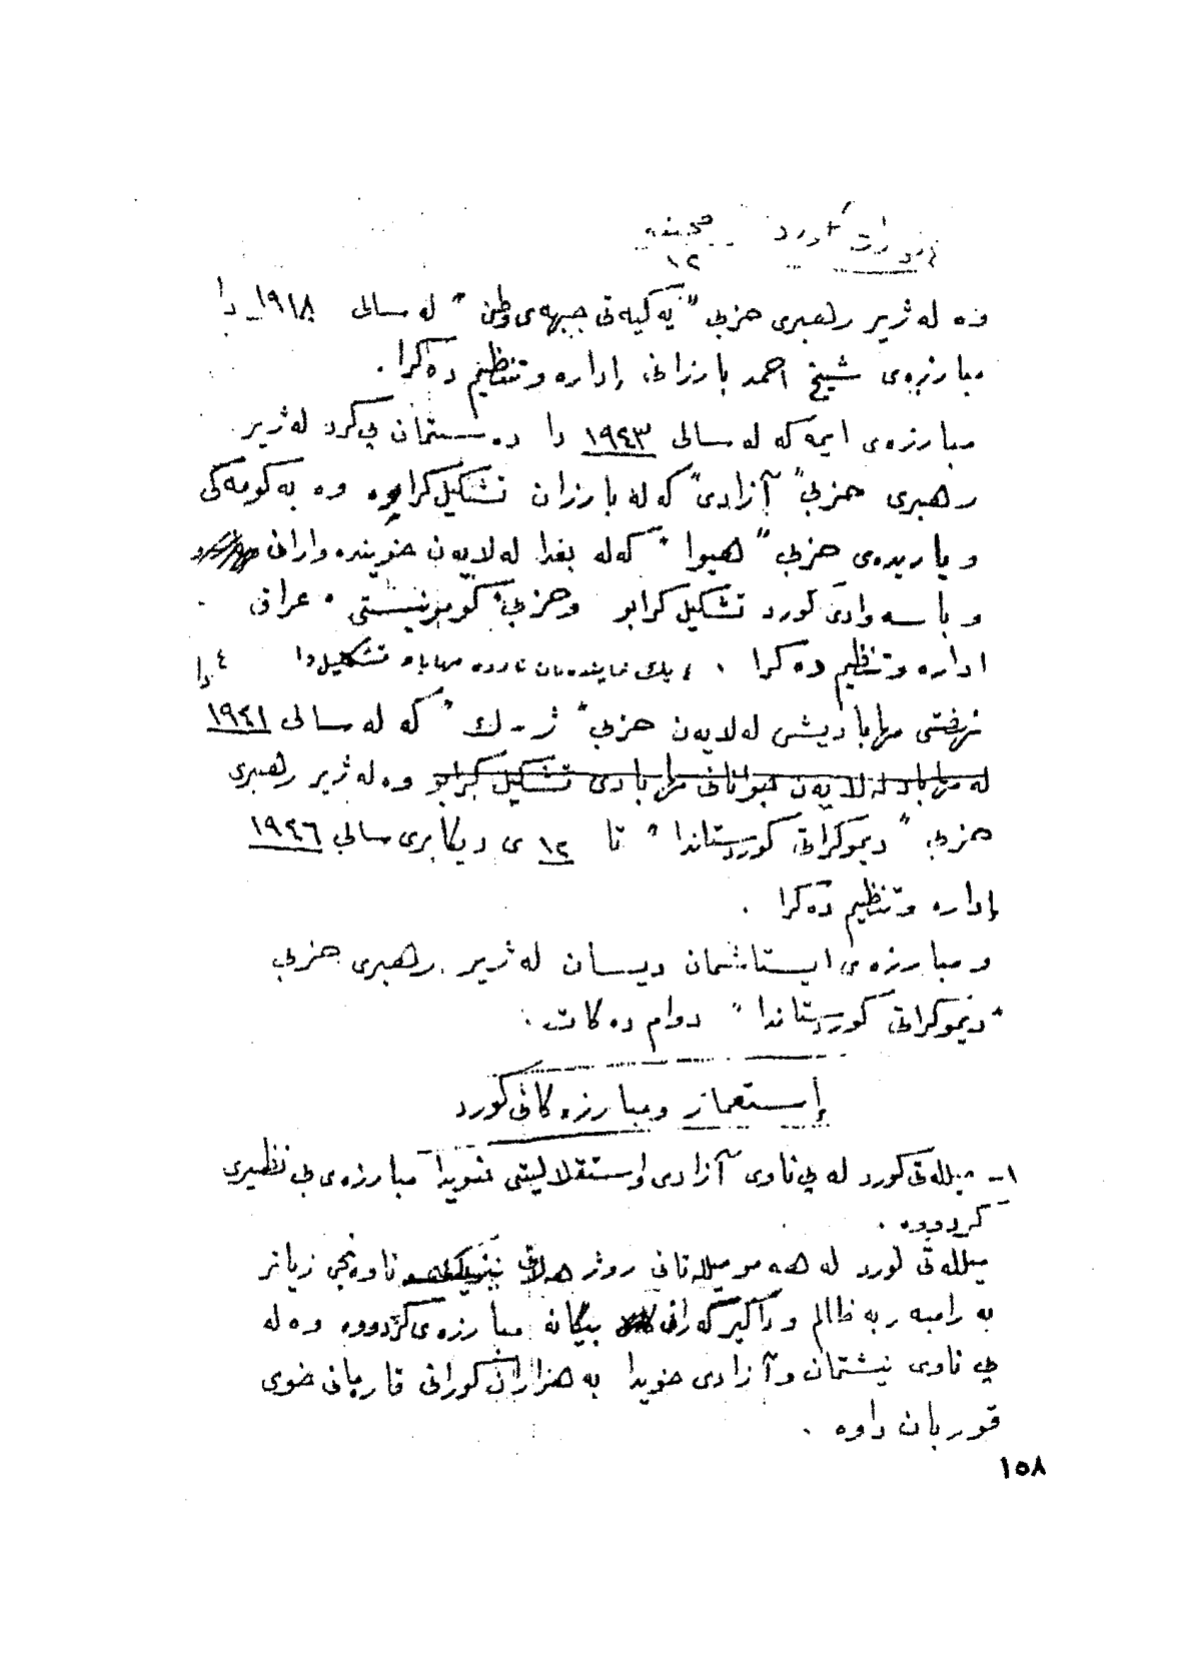 کورد صحیفه
١٢
وه له ژیر رهبری حزبی "یه کیه تی جبهه ی وطن" له سالی ١٩١٨ دا
مبارزه ی شیخ احمد بارزانی إداره وتنظیم ده کرا .
مبارزه ی ایمه که له سالی ١٩٤٣ دا ده ستمان پی کرد له ژیر
رهبری حزبی "آزادی" که له بارزان تشکیل کرابو وه به کومه کی
و یاریده ی حزبی "هیوا" که له بغدا له لایه ن خوینده وارانی
و با سه وادی کورد تشکیل کرابو وحزبی "کومونیستی" عراق .
اداره وتنظیم ده کرا .
نهضتی مهابادیشی له لایه ن حزبی "ژ - ك" که له سالی ١٩٤١ دا
له مهاباد له لایه ن جوانانی مهابادی تشکیل کرابو وه له ژیر رهبری
حزبی "دیموکراتی کوردستاندا" تا ١٢ ی دیکابری سالی ١٩٤٦
إداره وتنظیم ده کرا .
و مبارزه ی ایستاشمان دیسان له ژیر رهبری حزبی
"دیموکراتی کوردستاندا" دوام ده کات .
إستعمار ومبارزه کانی کورد
١- میلله تی کورد له پی ناوی آزادی واستقلالیتی خویدا مبارزه ی بی نظیری
کردووه .
میلله تی کورد له هه مو میلله تانی روژ هلاتی ناوه نجی زیاتر
به رامبه ر به ظالم و داگیر که رانی بیگانه مبارزه ی کردووه وه له
پی ناوی نیشتمان وآزادی خویدا به هزاران کورانی قارمانی خوی
قوربان داوه .
١٥٨